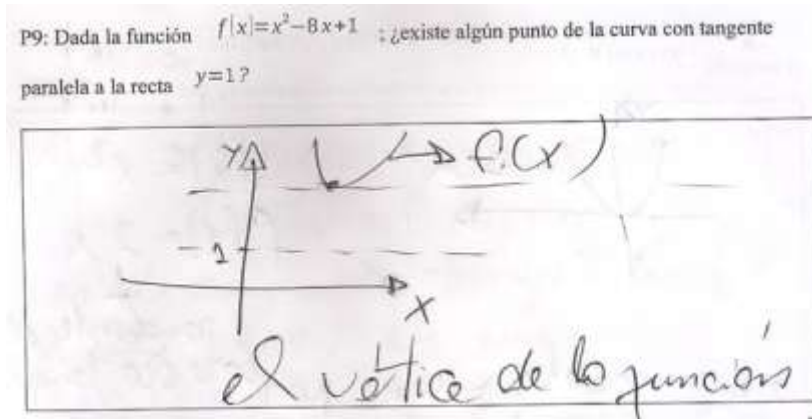 P9: Dada la función f(x)=x²-8x+1 ; ¿existe algún punto de la curva con tangente
paralela a la recta y=1?
y
f(x)
1
x
el vértice de la función